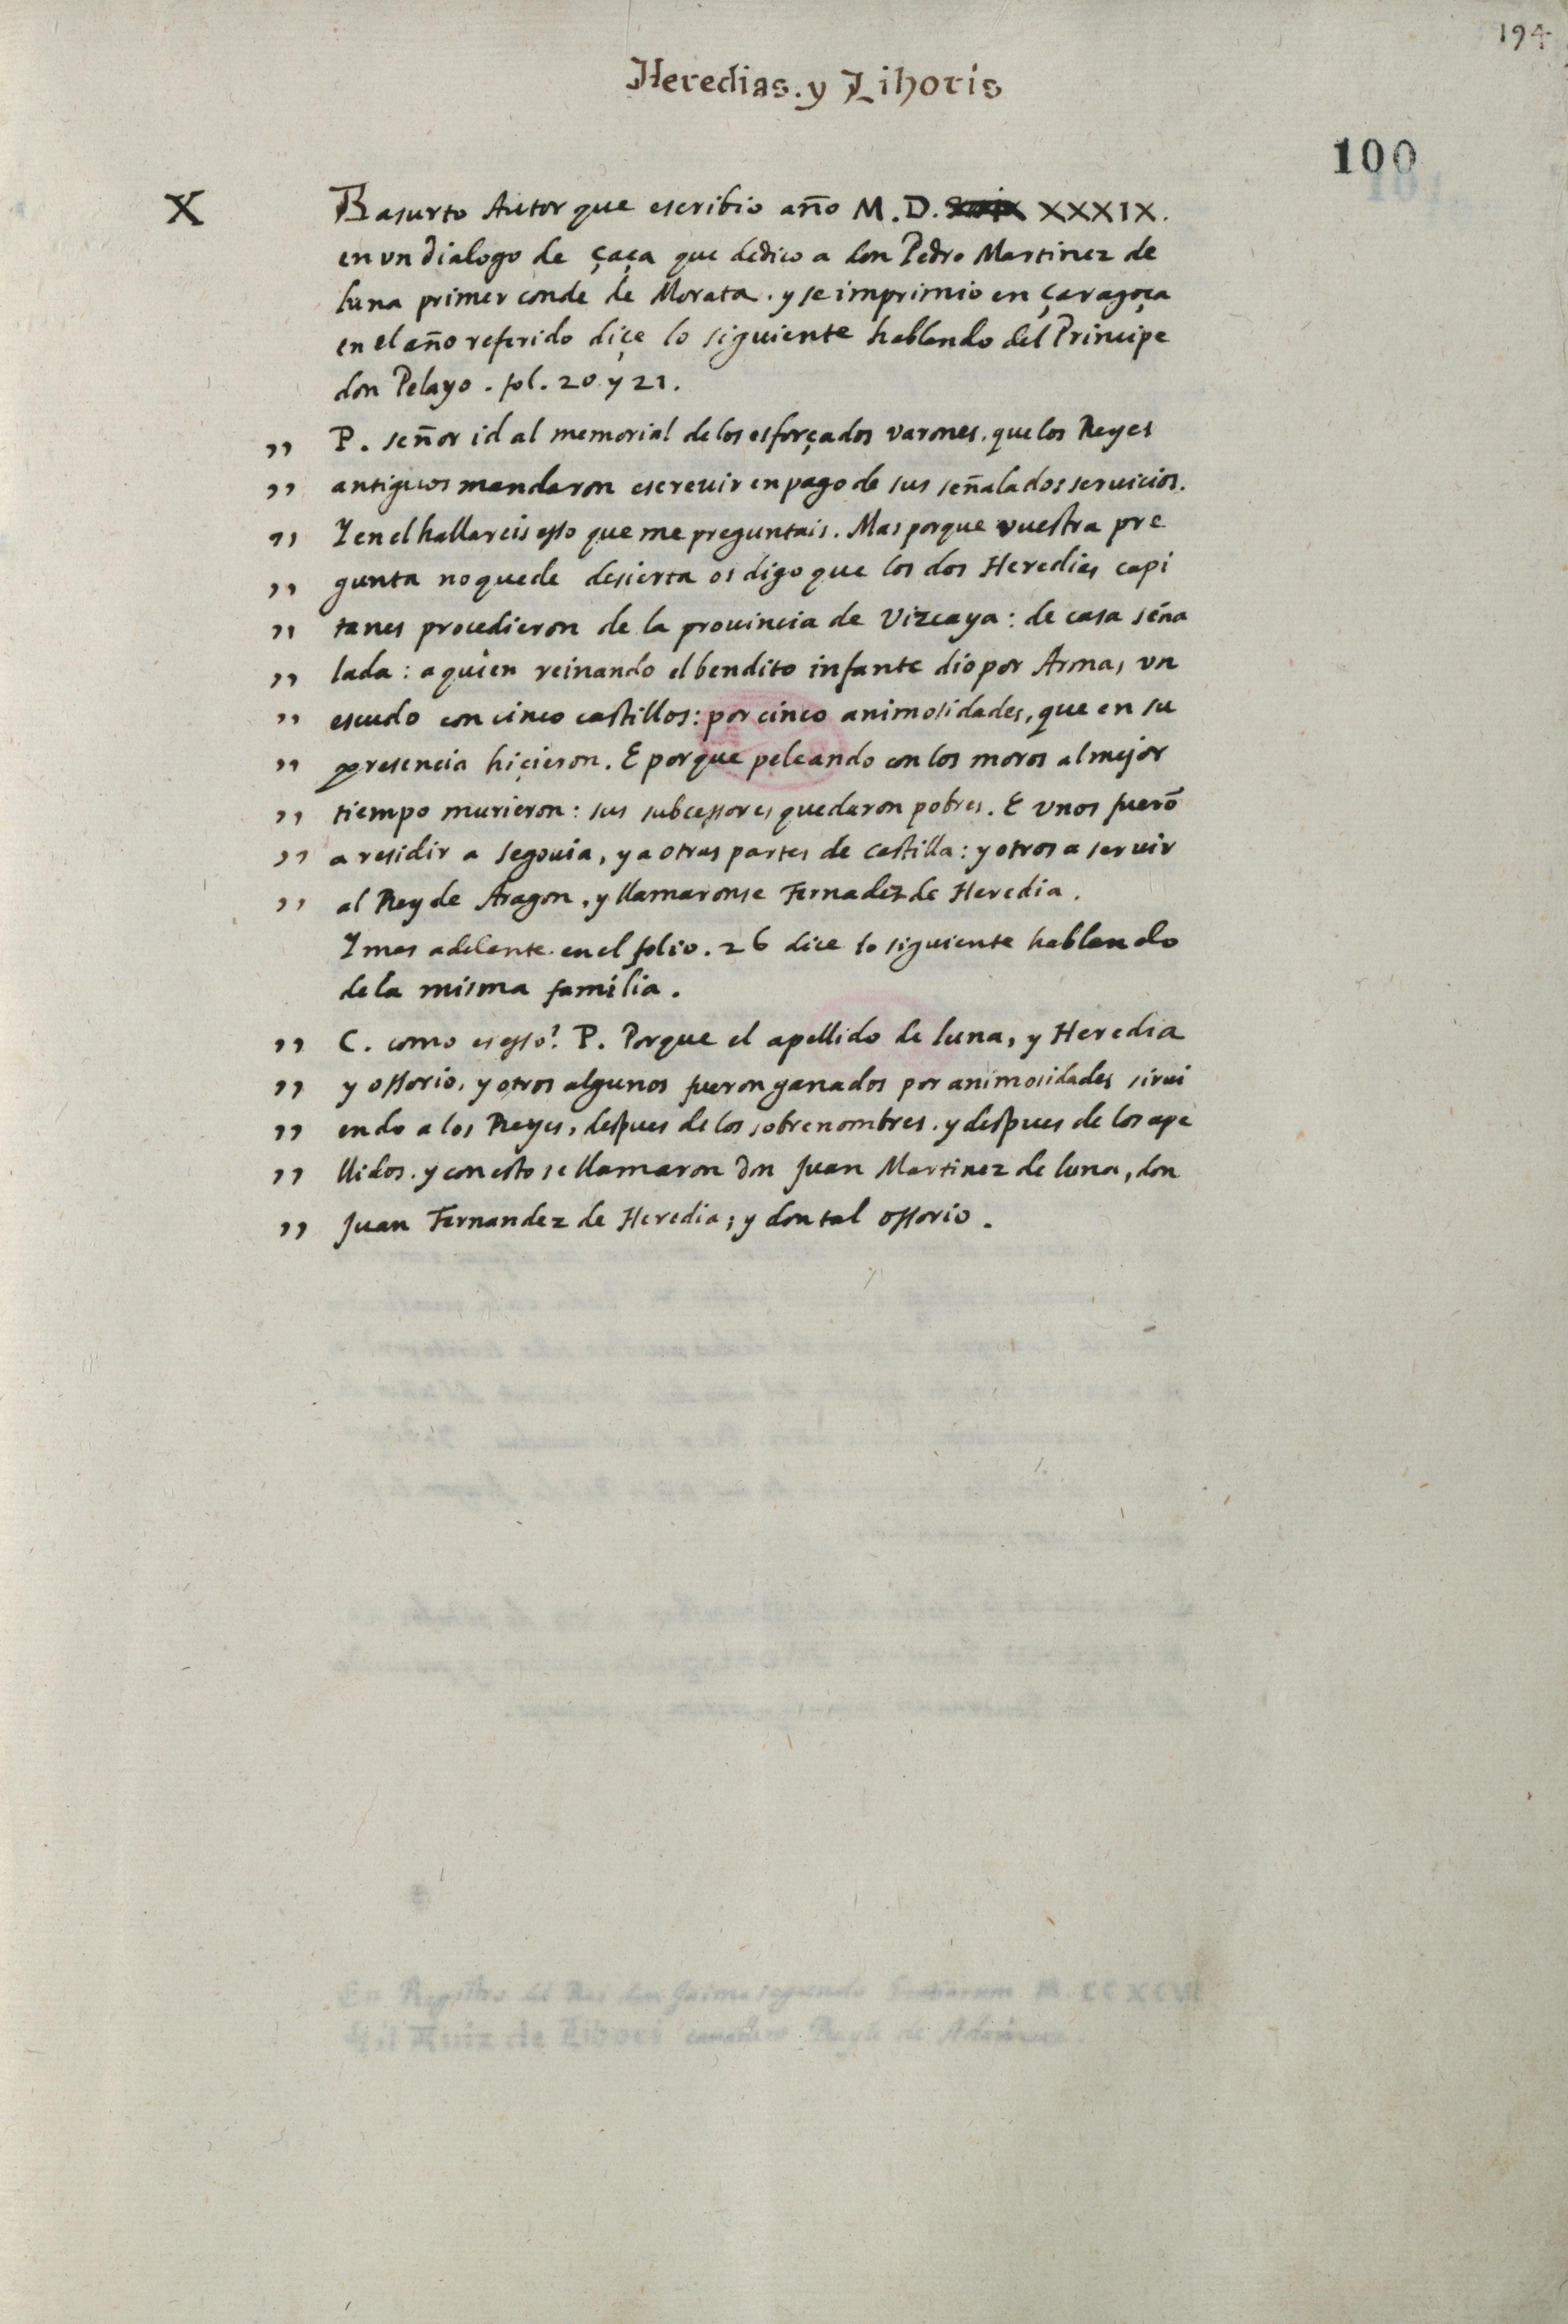 194
Heredias. y Lihoris
100
X Basurto Autor que escribio año M.D. XXXIX.
en vn dialogo de çaça que dedico a don Pedro Martinez de
luna primer conde de Morata. y se imprimio en çaragoça
en el año referido diçe lo siguiente hablando del Principe
don Pelayo. fol. 20 y 21.
,, P. señor id al memorial de los esforçados varones. que los Reyes
,, antiguos mandaron escreuir en pago de sus señalados seruicios.
,, Y en el hallareis esso que me preguntais. Mas porque vuestra pre
,, gunta no quede desierta os digo que los dos Heredias capi
,, tanes procedieron de la prouincia de Vizcaya: de casa seña
,, lada: a quien reinando el bendito infante dio por Armas vn
,, escudo con cinco castillos: por cinco animosidades, que en su
,, presencia hiçieron. E porque peleando con los moros al mejor
,, tiempo murieron: sus subcessores quedaron pobres. E vnos fuerō
,, a residir a segouia, y a otras partes de castilla: y otros a seruir
,, al Rey de Aragon, y llamaronse Fernadez de Heredia.
Y mas adelante en el folio. 26 dice lo siguiente hablando
de la misma familia.
,, C. como es esso? P. Porque el apellido de luna, y Heredia
,, y ossorio, y otros algunos fueron ganados por animosidades sirui
,, endo a los Reyes, despues de los sobrenombres. y despues de los ape
,, llidos. y con esto se llamaron don Juan Martinez de luna, don
,, Juan Fernandez de Heredia; y don tal ossorio.